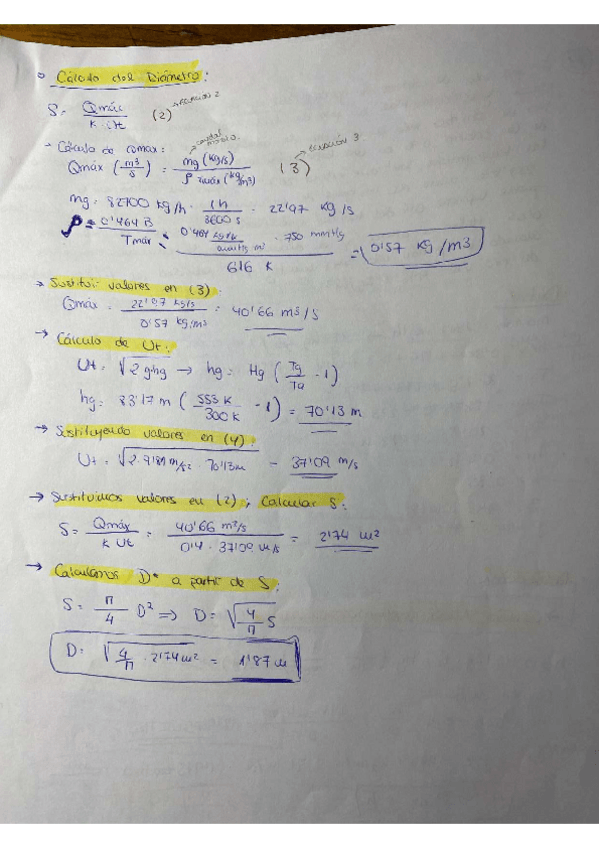 Cálculo del Diámetro:
S = Qmáx / K · Ut (2) → ecuación 2
→ Cálculo de Qmax:
Qmáx (m3/s) = mg (kg/s) / ρ Tmáx (kg/m3) (3) → ecuación 3
mg = 82700 kg/h · 1h / 3600 s = 22'97 kg/s
ρ = 0'464 B / Tmáx = 0'464 · 750 mmHg / 616 K = 0'57 kg/m3
→ Sustituir valores en (3):
Qmáx = 22'97 kg/s / 0'57 kg/m3 = 40'66 m3/s
→ Cálculo de Ut:
Ut = √2·g·hg → hg = Hg (Tg/Ta - 1)
hg = 83'17 m (553 K / 300 K - 1) = 70'13 m
→ Sustituyendo valores en (4):
Ut = √2 · 9'81 m/s2 · 70'13m = 37'09 m/s
→ Sustituimos valores en (2), Calcular S:
S = Qmáx / K Ut = 40'66 m3/s / 0'4 · 37'09 m/s = 2'74 m2
→ Calculamos D a partir de S:
S = π/4 D2 ⇒ D = √4/π S
D = √4/π · 2'74 m2 = 1'87 m